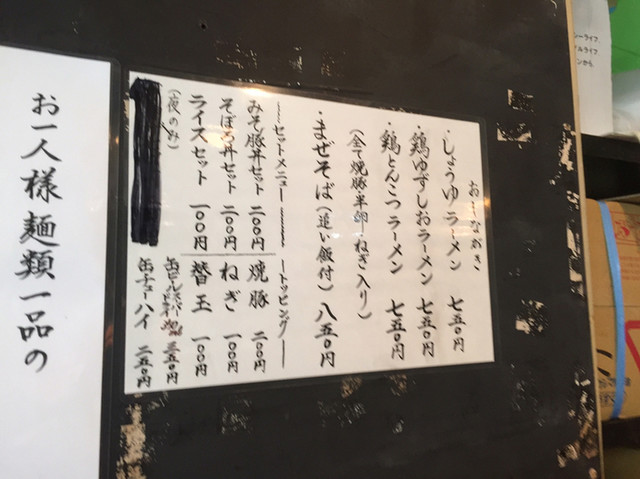 おしながき
・しょうゆラーメン 七五〇円
・鶏ゆずしおラーメン 七五〇円
・鶏とんこつラーメン 七五〇円
(全て焼豚半卵ねぎ入り)
・まぜそば(追い飯付) 八五〇円
セットメニュー
みそ豚丼セット 二〇〇円
そぼろ丼セット 二〇〇円
ライスセット 一〇〇円
(夜のみ)
トッピング
焼豚 二〇〇円
ねぎ 一〇〇円
替玉 一〇〇円
缶ビール 三五〇円
缶チューハイ 二五〇円
お一人様麺類一品の